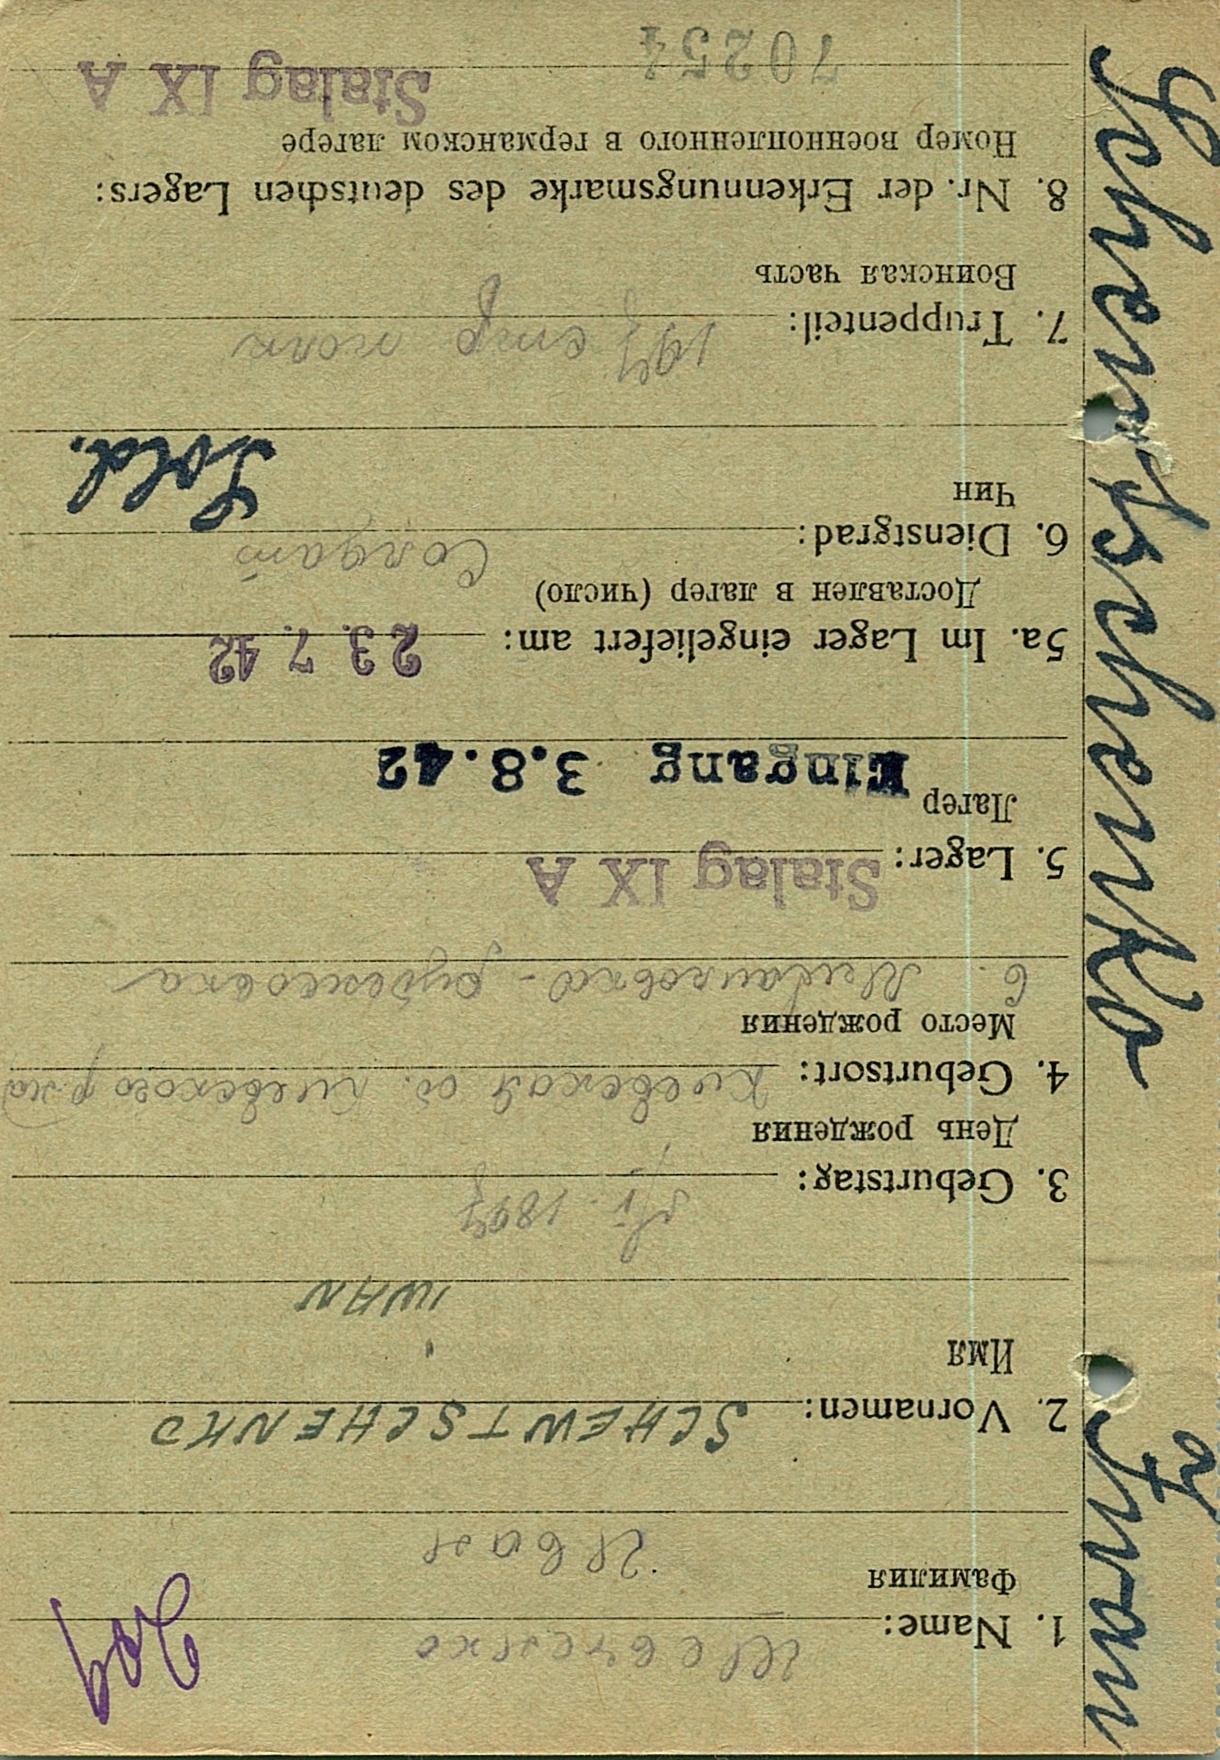 Schewtschenko Iwan
1. Name: Шевченко
Фамилия
Иван
2. Vornamen: SCHEWTSCHENKO
Имя
IWAN
3. Geburtstag: 1897
День рождения
4. Geburtsort: Киевская об. Киевского р-на
Место рождения
с. Михайловка-рубежовка
5. Lager: Stalag IX A
Лагер
Eingang 3.8.42
5a. Im Lager eingeliefert am: 23.7.42
Доставлен в лагер (число)
6. Dienstgrad: Солдат
Чин
Sold.
7. Truppenteil: 197 стр полк
Воинская часть
8. Nr. der Erkennungsmarke des deutschen Lagers:
Номер военнопленного в германском лагере
70254 Stalag IX A